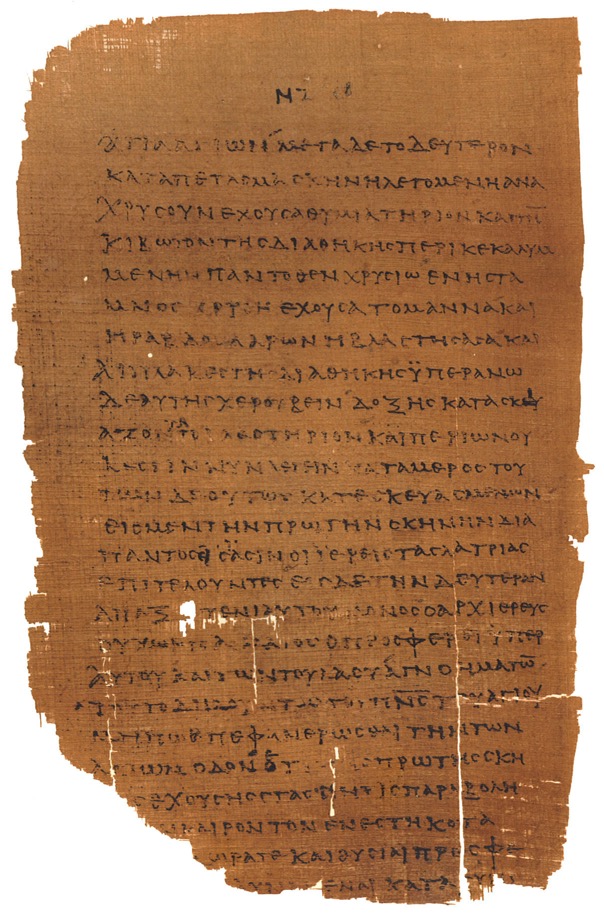 ΝΖ
ΑΓΙΑ ΑΓΙΩΝ ΜΕΤΑ ΔΕ ΤΟ ΔΕΥΤΕΡΟΝ
ΚΑΤΑΠΕΤΑϹΜΑ ϹΚΗΝΗ Η ΛΕΓΟΜΕΝΗ ΑΝΑ
ΧΡΥϹΟΥΝ ΕΧΟΥϹΑ ΘΥΜΙΑΤΗΡΙΟΝ ΚΑΙ
ΚΙΒΩΤΟΝ ΤΗϹ ΔΙΑΘΗΚΗϹ ΠΕΡΙΚΕΚΑΛΥΜ
ΜΕΝΗΝ ΠΑΝΤΟΘΕΝ ΧΡΥϹΙΩ ΕΝ Η ϹΤΑ
ΜΝΟϹ ΕΧΟΥϹΑ ΤΟ ΜΑΝΝΑ ΚΑΙ
Η ΡΑΒΔΟϹ ΑΑΡΩΝ Η ΒΛΑϹΤΗϹΑϹΑ ΚΑΙ
ΔΙΑΘΗΚΗϹ ΫΠΕΡΑΝΩ
ΔΕ ΑΥΤΗϹ ΧΕΡΟΥΒΕΙΝ ΔΟΞΗϹ ΚΑΤΑϹΚΙ
ΑΖΟΝ ΙΛΑϹΤΗΡΙΟΝ ΚΑΙ ΠΕΡΙ ΩΝ ΟΥ
ΝΥΝ ΛΕΓΕΙΝ ΚΑΤΑ ΜΕΡΟϹ ΤΟΥ
ΤΩΝ ΔΕ ΟΥΤΩϹ ΚΑΤΕϹΚΕΥΑϹΜΕΝΩΝ
ΕΙϹ ΜΕΝ ΤΗΝ ΠΡΩΤΗΝ ϹΚΗΝΗΝ ΔΙΑ
ΠΑΝΤΟϹ ΕΙϹΙΑϹΙΝ ΟΙ ΪΕΡΕΙϹ ΤΑϹ ΛΑΤΡΙΑϹ
ΕΠΙΤΕΛΟΥΝΤΕϹ ΕΙϹ ΔΕ ΤΗΝ ΔΕΥΤΕΡΑΝ
ΑΠΑΞ ΤΟΥ ΕΝΙΑΥΤΟΥ ΜΟΝΟϹ Ο ΑΡΧΙΕΡΕΥϹ
ΟΥ ΧΩΡΙϹ ΑΙΜΑΤΟϹ Ο ΠΡΟϹΦΕΡΕΙ ΫΠΕΡ
ΑΥΤΟΥ ΚΑΙ ΤΩΝ ΤΟΥ ΛΑΟΥ ΑΓΝΟΗΜΑΤΩ̅
ΤΟΥΤΟ ΔΗΛΟΥΝΤΟϹ ΤΟΥ Π̅Ν̅Ϲ̅ ΤΟΥ ΑΓΙΟΥ
ΜΗΠΩ ΠΕΦΑΝΕΡΩϹΘΑΙ ΤΗΝ ΤΩΝ
ΑΓΙΩΝ ΟΔΟΝ ΕΤΙ ΤΗϹ ΠΡΩΤΗϹ ϹΚΗ
ΕΧΟΥϹΗϹ ϹΤΑϹΙΝ ΠΑΡΑΒΟΛΗ
ΚΑΙΡΟΝ ΤΟΝ ΕΝΕϹΤΗΚΟΤΑ
ΔΩΡΑ ΤΕ ΚΑΙ ΘΥϹΙΑΙ ΠΡΟϹΦΕ
ΚΑΤΑ